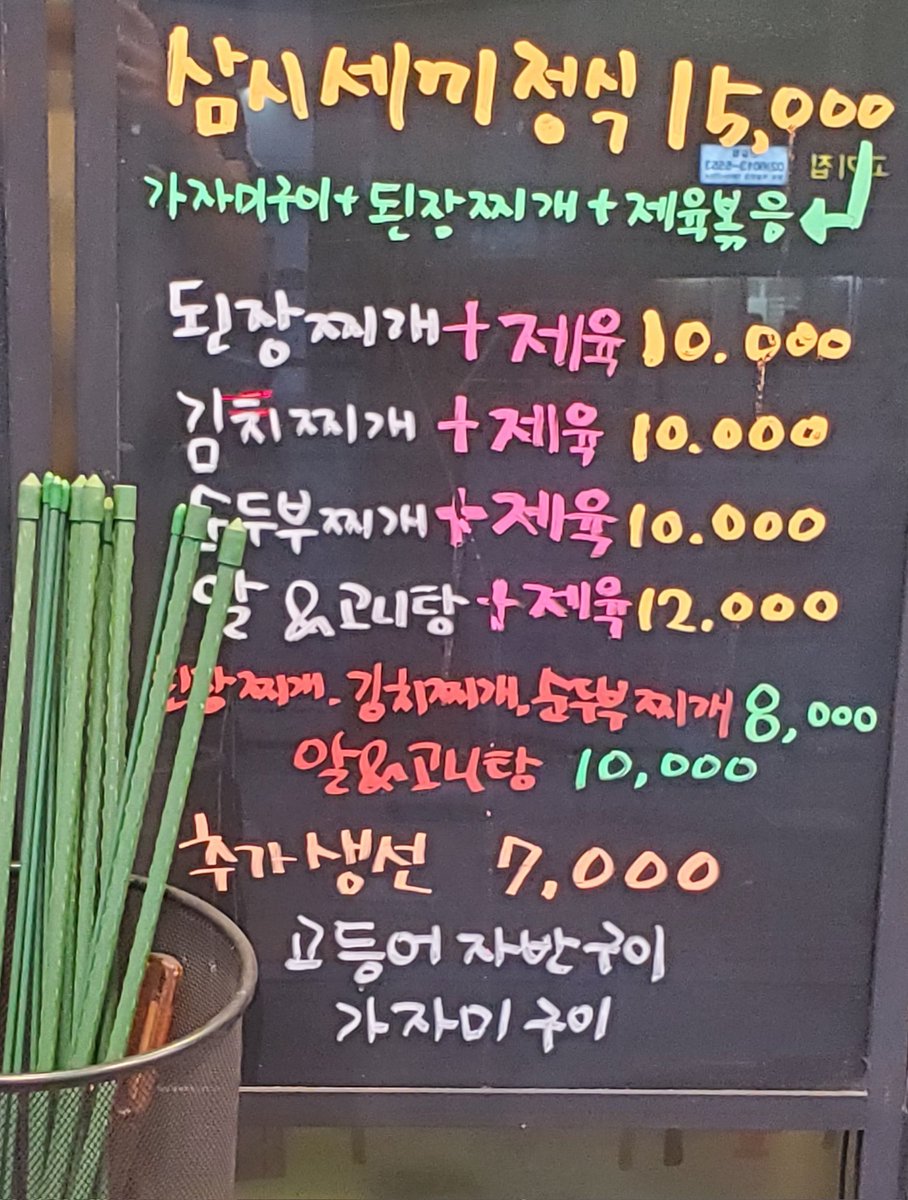 삼시세끼정식 15,000
가자미구이+된장찌개+제육볶음
된장찌개+제육 10.000
김치찌개+제육 10.000
순두부찌개+제육 10.000
알&고니탕+제육 12.000
된장찌개.김치찌개.순두부찌개 8,000
알&고니탕 10,000
추가생선 7,000
고등어자반구이
가자미구이